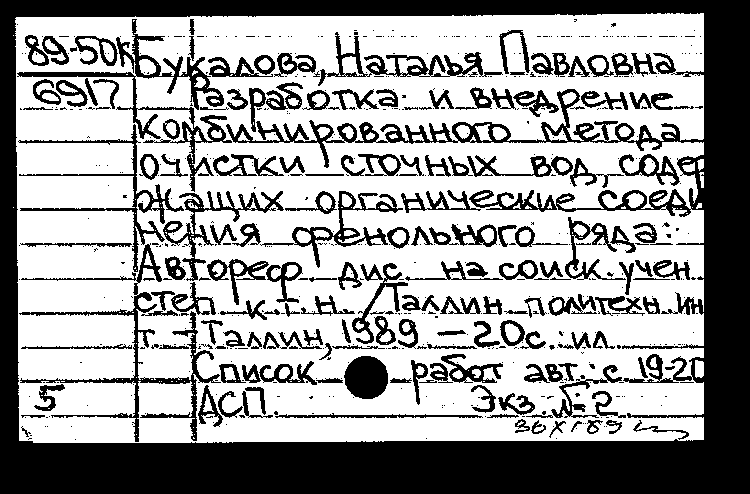 89-50к Букалова, Наталья Павловна
6917 Разработка и внедрение
комбинированного метода
очистки сточных вод, содер
жащих органические соеди
нения фенольного ряда:
Автореф. дис. на соиск. учен.
степ. к.т.н. / Таллин. политехн. ин
т. - Таллин, 1989. - 20с.: ил
Список работ авт.: с. 19-20
5 ДСП. Экз. №2